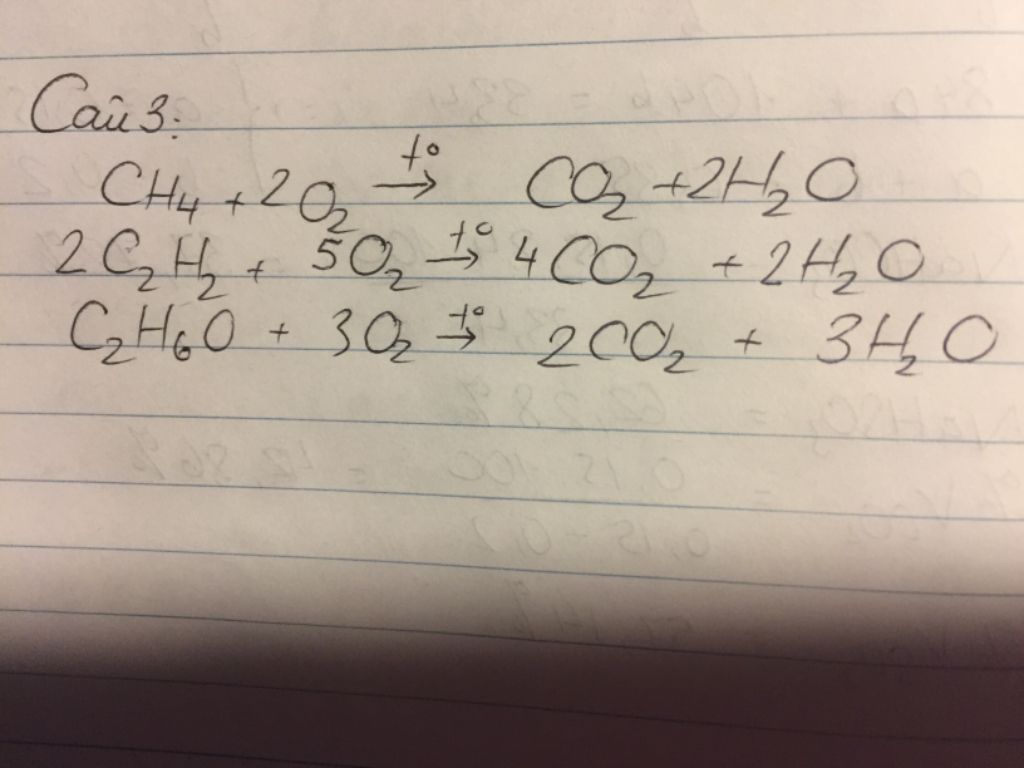 Саи 3:
CH₄ + 2O₂ →t° CO₂ + 2H₂O
2C₂H₂ + 5O₂ →t° 4CO₂ + 2H₂O
C₂H₆O + 3O₂ →t° 2CO₂ + 3H₂O